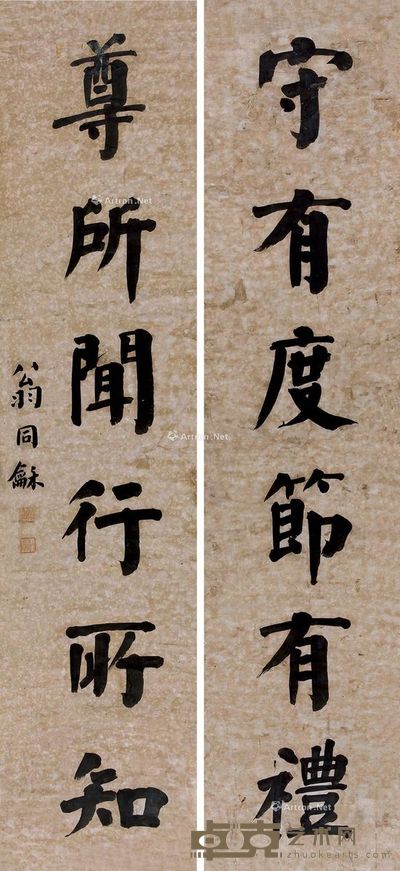 守有度節有禮
尊所聞行所知
翁同龢
Artron.Net
Artron.Net
Artron.Net
卓克艺术网
zhuokearts.com